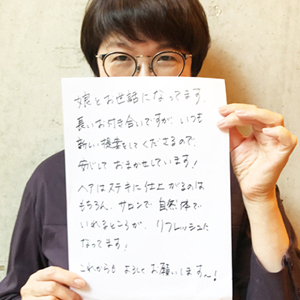 娘とお世話になってます。
長いお付き合いですが、いつも
新しい提案をしてくださるので
安心しておまかせしています!
ヘアはステキに仕上がるのは
もちろん、サロンで自然体で
いれるところが、リフレッシュに
なってます!
これからもよろしくお願いします〜!